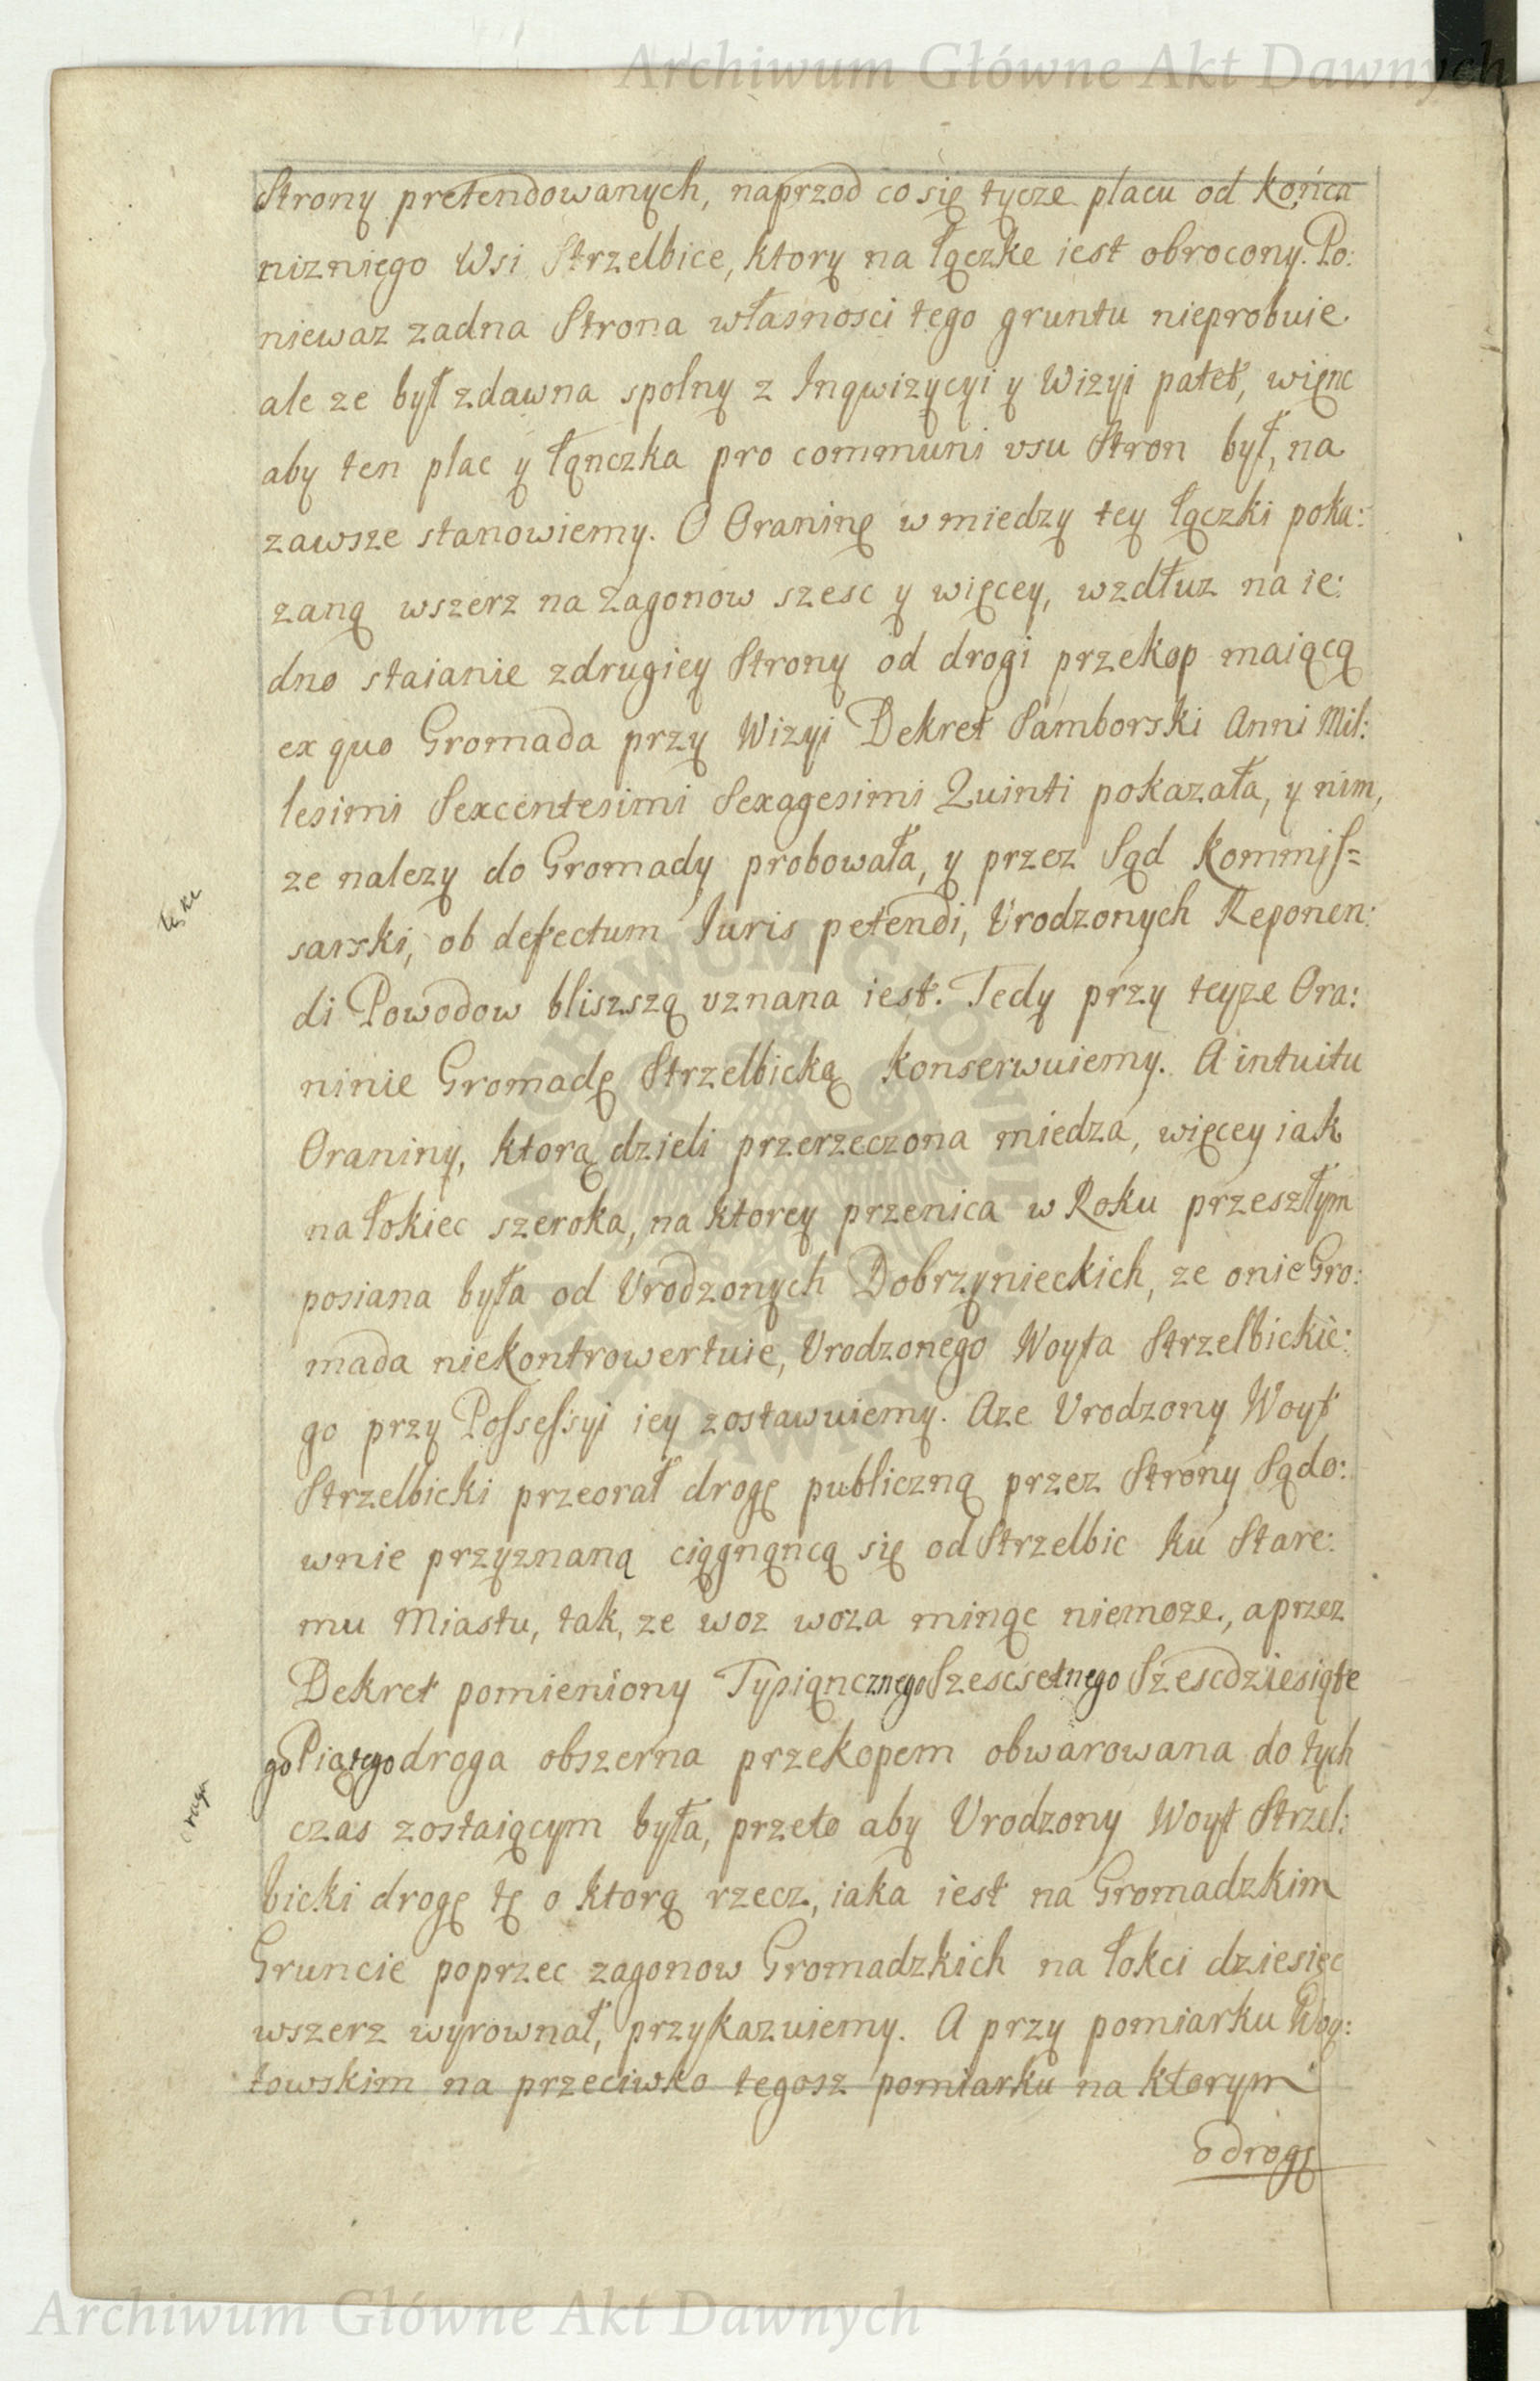 Archiwum Główne Akt Dawnych
Strony pretendowanych, naprzod co się tycze placu od końca
nizniego Wsi Strzelbice, ktory na łączke iest obrocony. Po:
niewaz zadna Strona własnosci tego gruntu nieprobuie
ale ze był zdawna spolny z Inqwizycyi y Wizyi patet, więnc
aby ten plac y łąnczka pro communi vsu Stron był, na
zawsze stanowiemy. O Oraninę w miedzy tey łączki poka:
zaną wszerz na Zagonow szesc y więcey, wzdłuz na ie:
dno staianie zdrugiey Strony od drogi przekop maiącą
ex quo Gromada przy Wizyi Dekret Samborski Anni Mil:
lesimi Sexcentesimi Sexagesimi Quinti pokazała, y nim,
ze nalezy do Gromady probowała, y przez Sąd Kommis=
sarski, ob defectum Iuris petendi, Vrodzonych Reponen:
di Powodow bliszszą vznana iest. Tedy przy teyze Ora:
ninie Gromadę Strzelbicką konserwuiemy. A intuitu
Oraniny, ktorą dzieli przerzeczona miedza, więcey iak
na łokiec szeroka, na ktorey przenica w Roku przeszłym
posiana była od Vrodzonych Dobrzynieckich, ze onie Gro:
mada niekontrowertuie, Vrodzonego Woyta Strzelbickie:
go przy Possessyi iey zostawuiemy. Aze Vrodzony Woyt
Strzelbicki przeorał drogę publiczną przez Strony Sądo:
wnie przyznaną ciągnąncą się od Strzelbic ku Stare:
mu Miastu, tak, ze woz woza minąc niemoze, a przez
Dekret pomieniony Tysiąncznego Szescsetnego Szescdziesiąte
go Piątego droga obszerna przekopem obwarowana do tych
czas zostaiącym była, przeto aby Vrodzony Woyt Strzel:
bicki drogę tę o ktorą rzecz, iaka iest na Gromadzkim
Gruncie poprzec zagonow Gromadzkich na łokci dziesięc
wszerz wyrownał, przykazuiemy. A przy pomiarku Woy:
towskim na przeciwko tegosz pomiarku na ktorym
o drogę
ARCHIWUM GŁÓWNE AKT DAWNYCH
Archiwum Główne Akt Dawnych